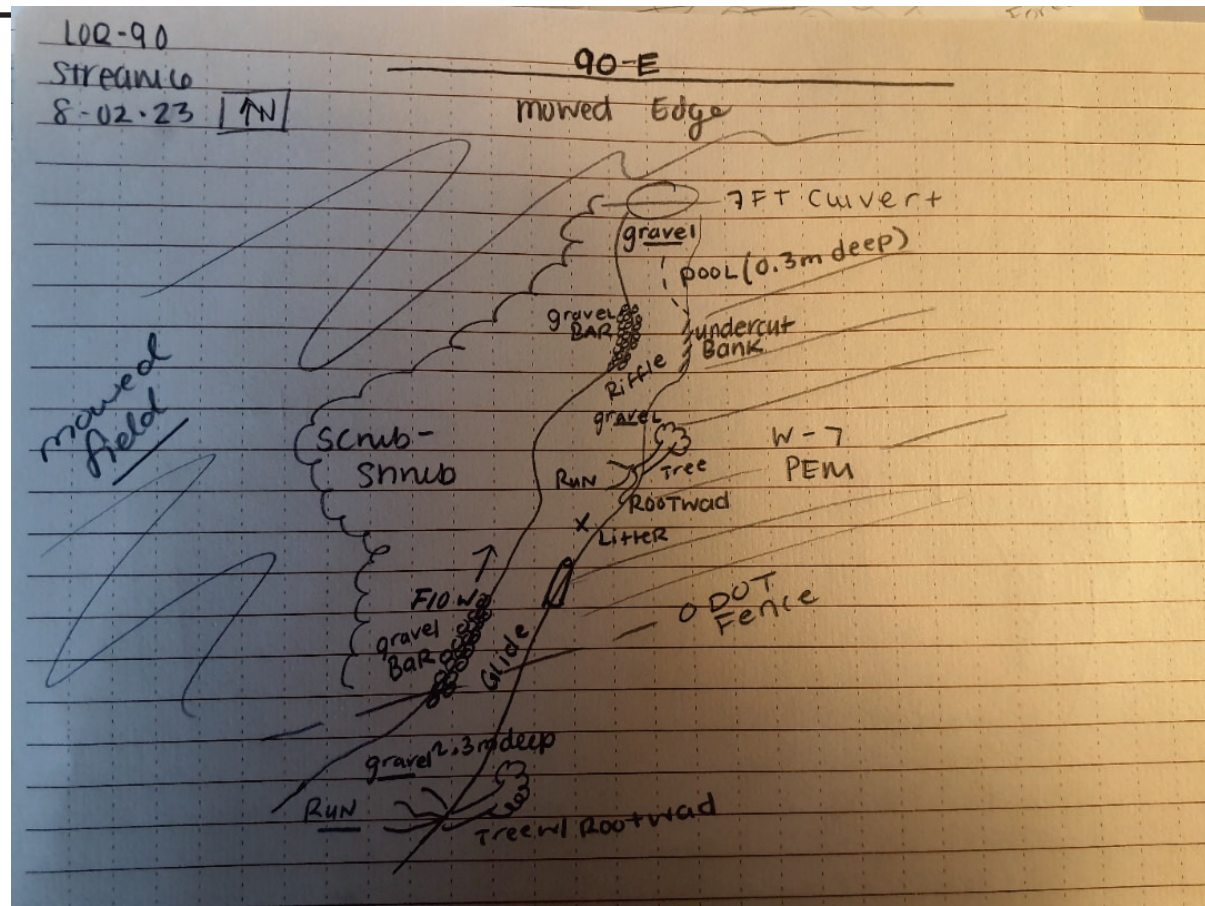 LOR-90
Stream 6
8-02-23 ↑N
90-E
mowed Edge
7FT Culvert
gravel
POOL (0.3m deep)
gravel
BAR
undercut
Bank
Riffle
gravel
mowed
field
Scrub-
Shrub
W-7
PEM
Run
Tree
Rootwad
x Litter
Flow
ODOT
Fence
gravel
BaR
Glide
gravel ~.3m deep
Run
Tree w/ Rootwad